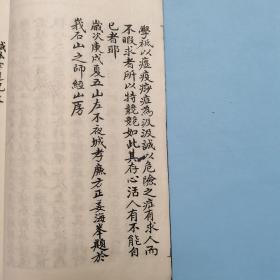 學祗以瘟疫痧症為汲汲誠以危險之症有求人而
不暇求者所以特兢兢如此其存心活人有不能自
已者耶
歲次庚戌夏五山左不夜城孝廉方正姜海峯題於
我石山之師經山房